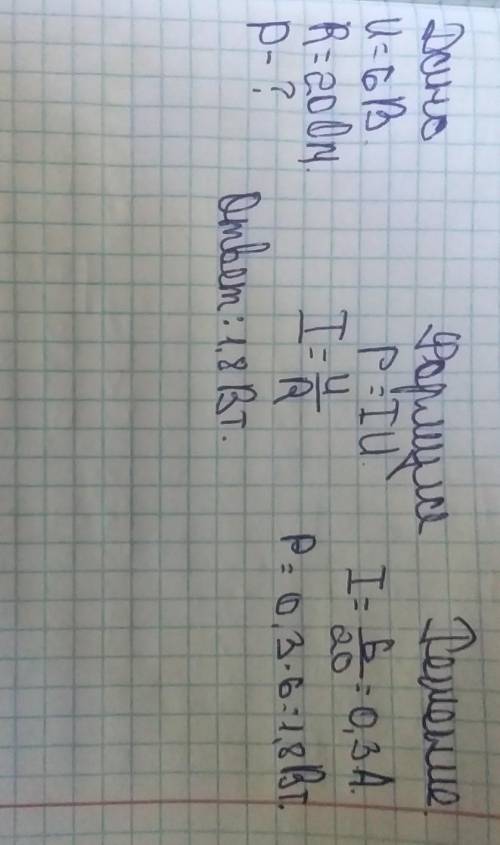 Дано
U = 6 В.
R = 20 Ом.
P - ?
Формула
P = IU.
I = U/R
Решение.
I = 6/20 = 0,3 А.
P = 0,3 · 6 = 1,8 Вт.
Ответ: 1,8 Вт.